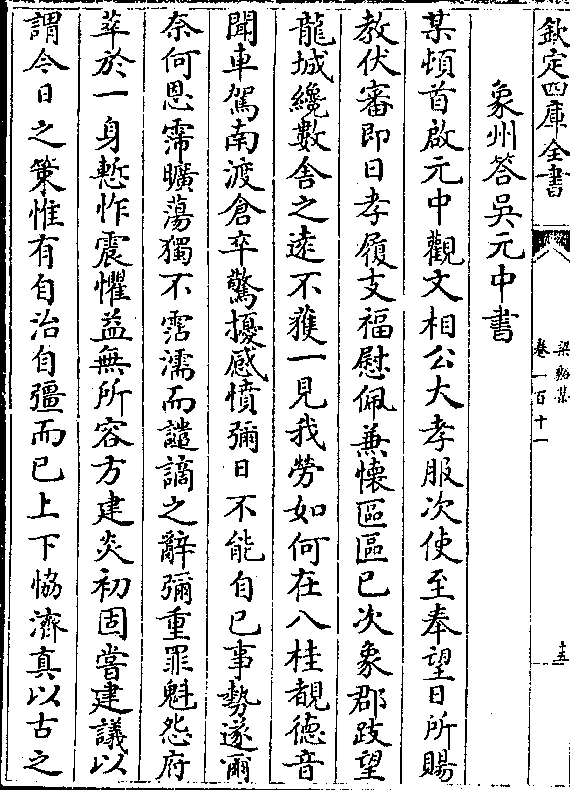 欽定四庫全書
梁谿集
卷一百十一
十五
象州答吳元中書
某頓首啟元中觀文相公大孝服次使至奉望日所賜
教伏審即日孝履支福慰佩兼懷區區已次象郡跂望
龍城纔數舍之遠不獲一見我勞如何在八桂覩德音
聞車駕南渡倉卒驚擾感憤彌日不能自已事勢遂爾
奈何恩霈曠蕩獨不霑濡而譴謫之辭彌重罪魁怨府
萃於一身慙怍震懼益無所容方建炎初固嘗建議以
謂今日之策惟有自治自彊而已上下恊濟真以古之